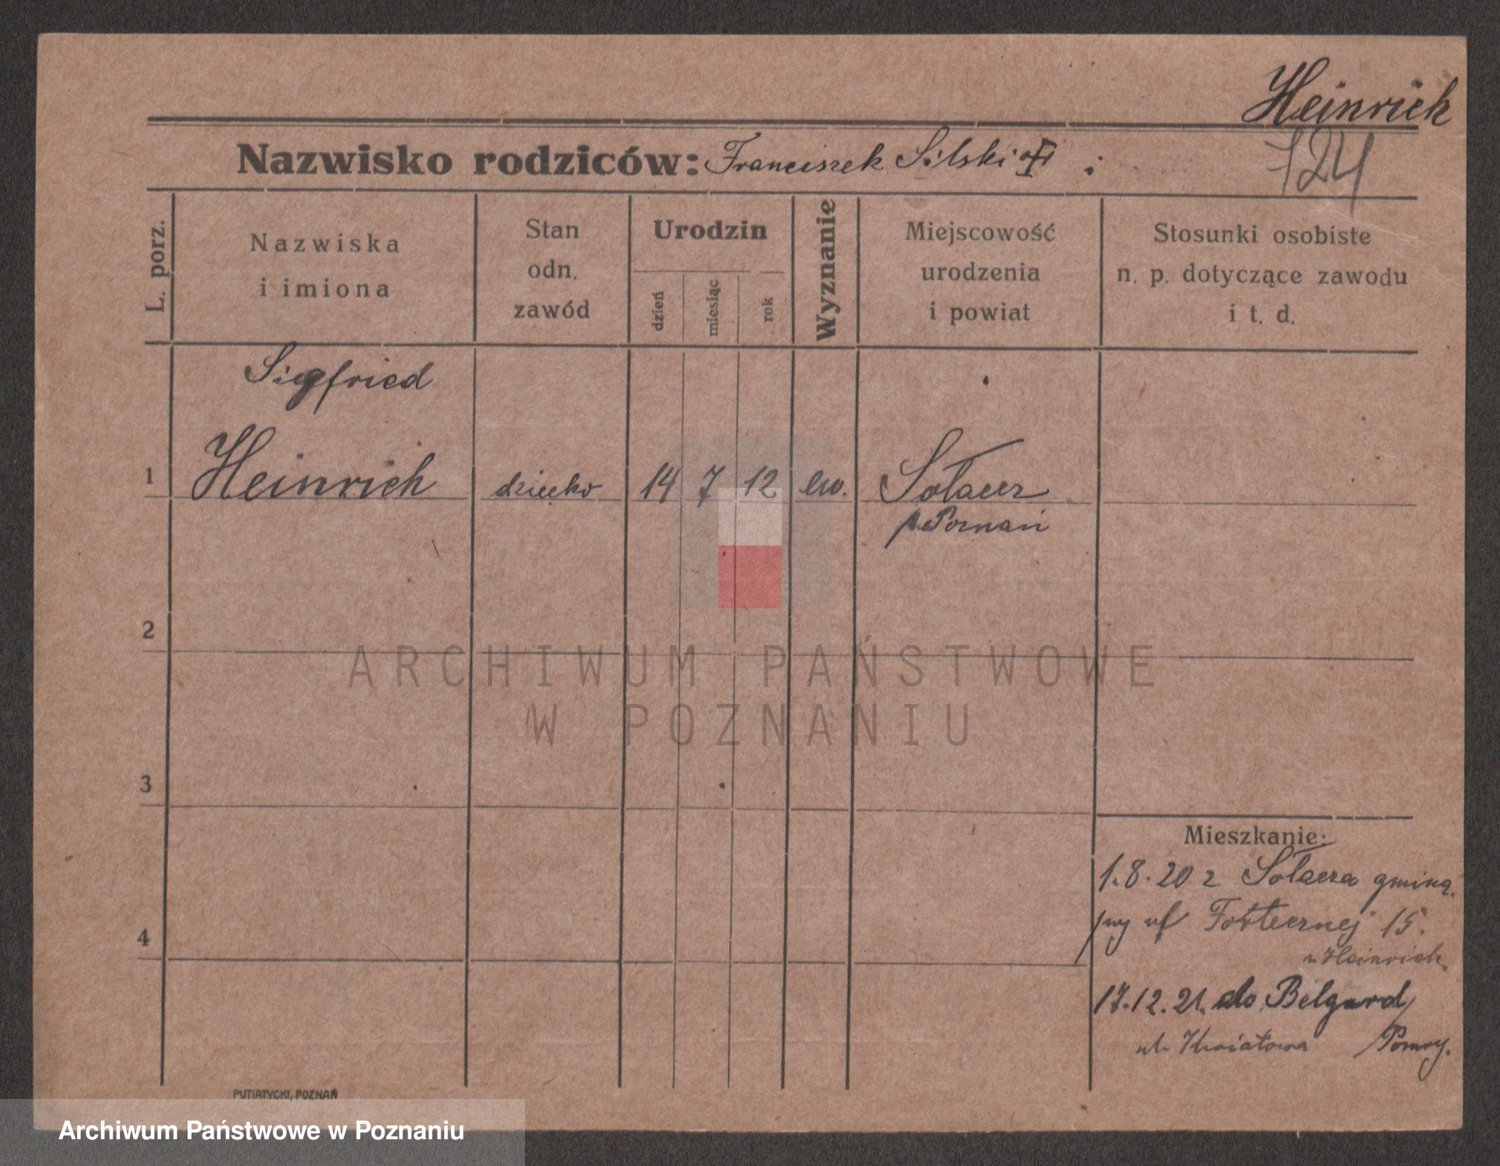 Heinrich
124
Nazwisko rodziców: Franciszek Silski :
L. porz.
Nazwiska
i imiona
Stan
odn.
zawód
Urodzin
dzień
miesiąc
rok
Wyznanie
Miejscowość
urodzenia
i powiat
Stosunki osobiste
n. p. dotyczące zawodu
i t. d.
Siegfried
1 Heinrich dziecko 14 7 12 ew. Sołacz
Poznań
2
3
4
Mieszkanie:
1.8.20 z Sołacza gminą
Fortecznej 15.
Heinrich
17.12.21. do Belgard
ul. Kwiatowa Pomorz.
PUTIATYCKI, POZNAŃ
ARCHIWUM PAŃSTWOWE
W POZNANIU
Archiwum Państwowe w Poznaniu